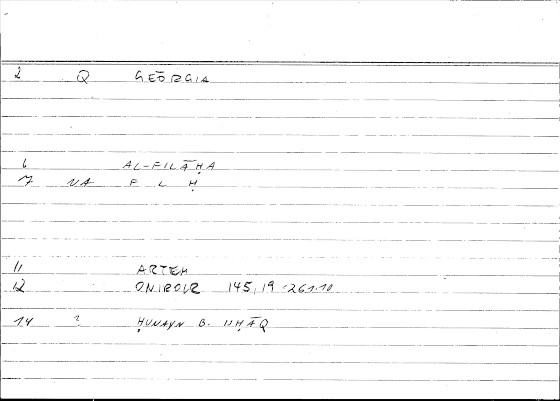 2 Q GEŌRGIA
6 AL-FILĀḤA
7 NA F L Ḥ
11 ARTEM
12 ONIROCR 145,19 261.10
14 ? ḤUNAYN B. ISḤĀQ